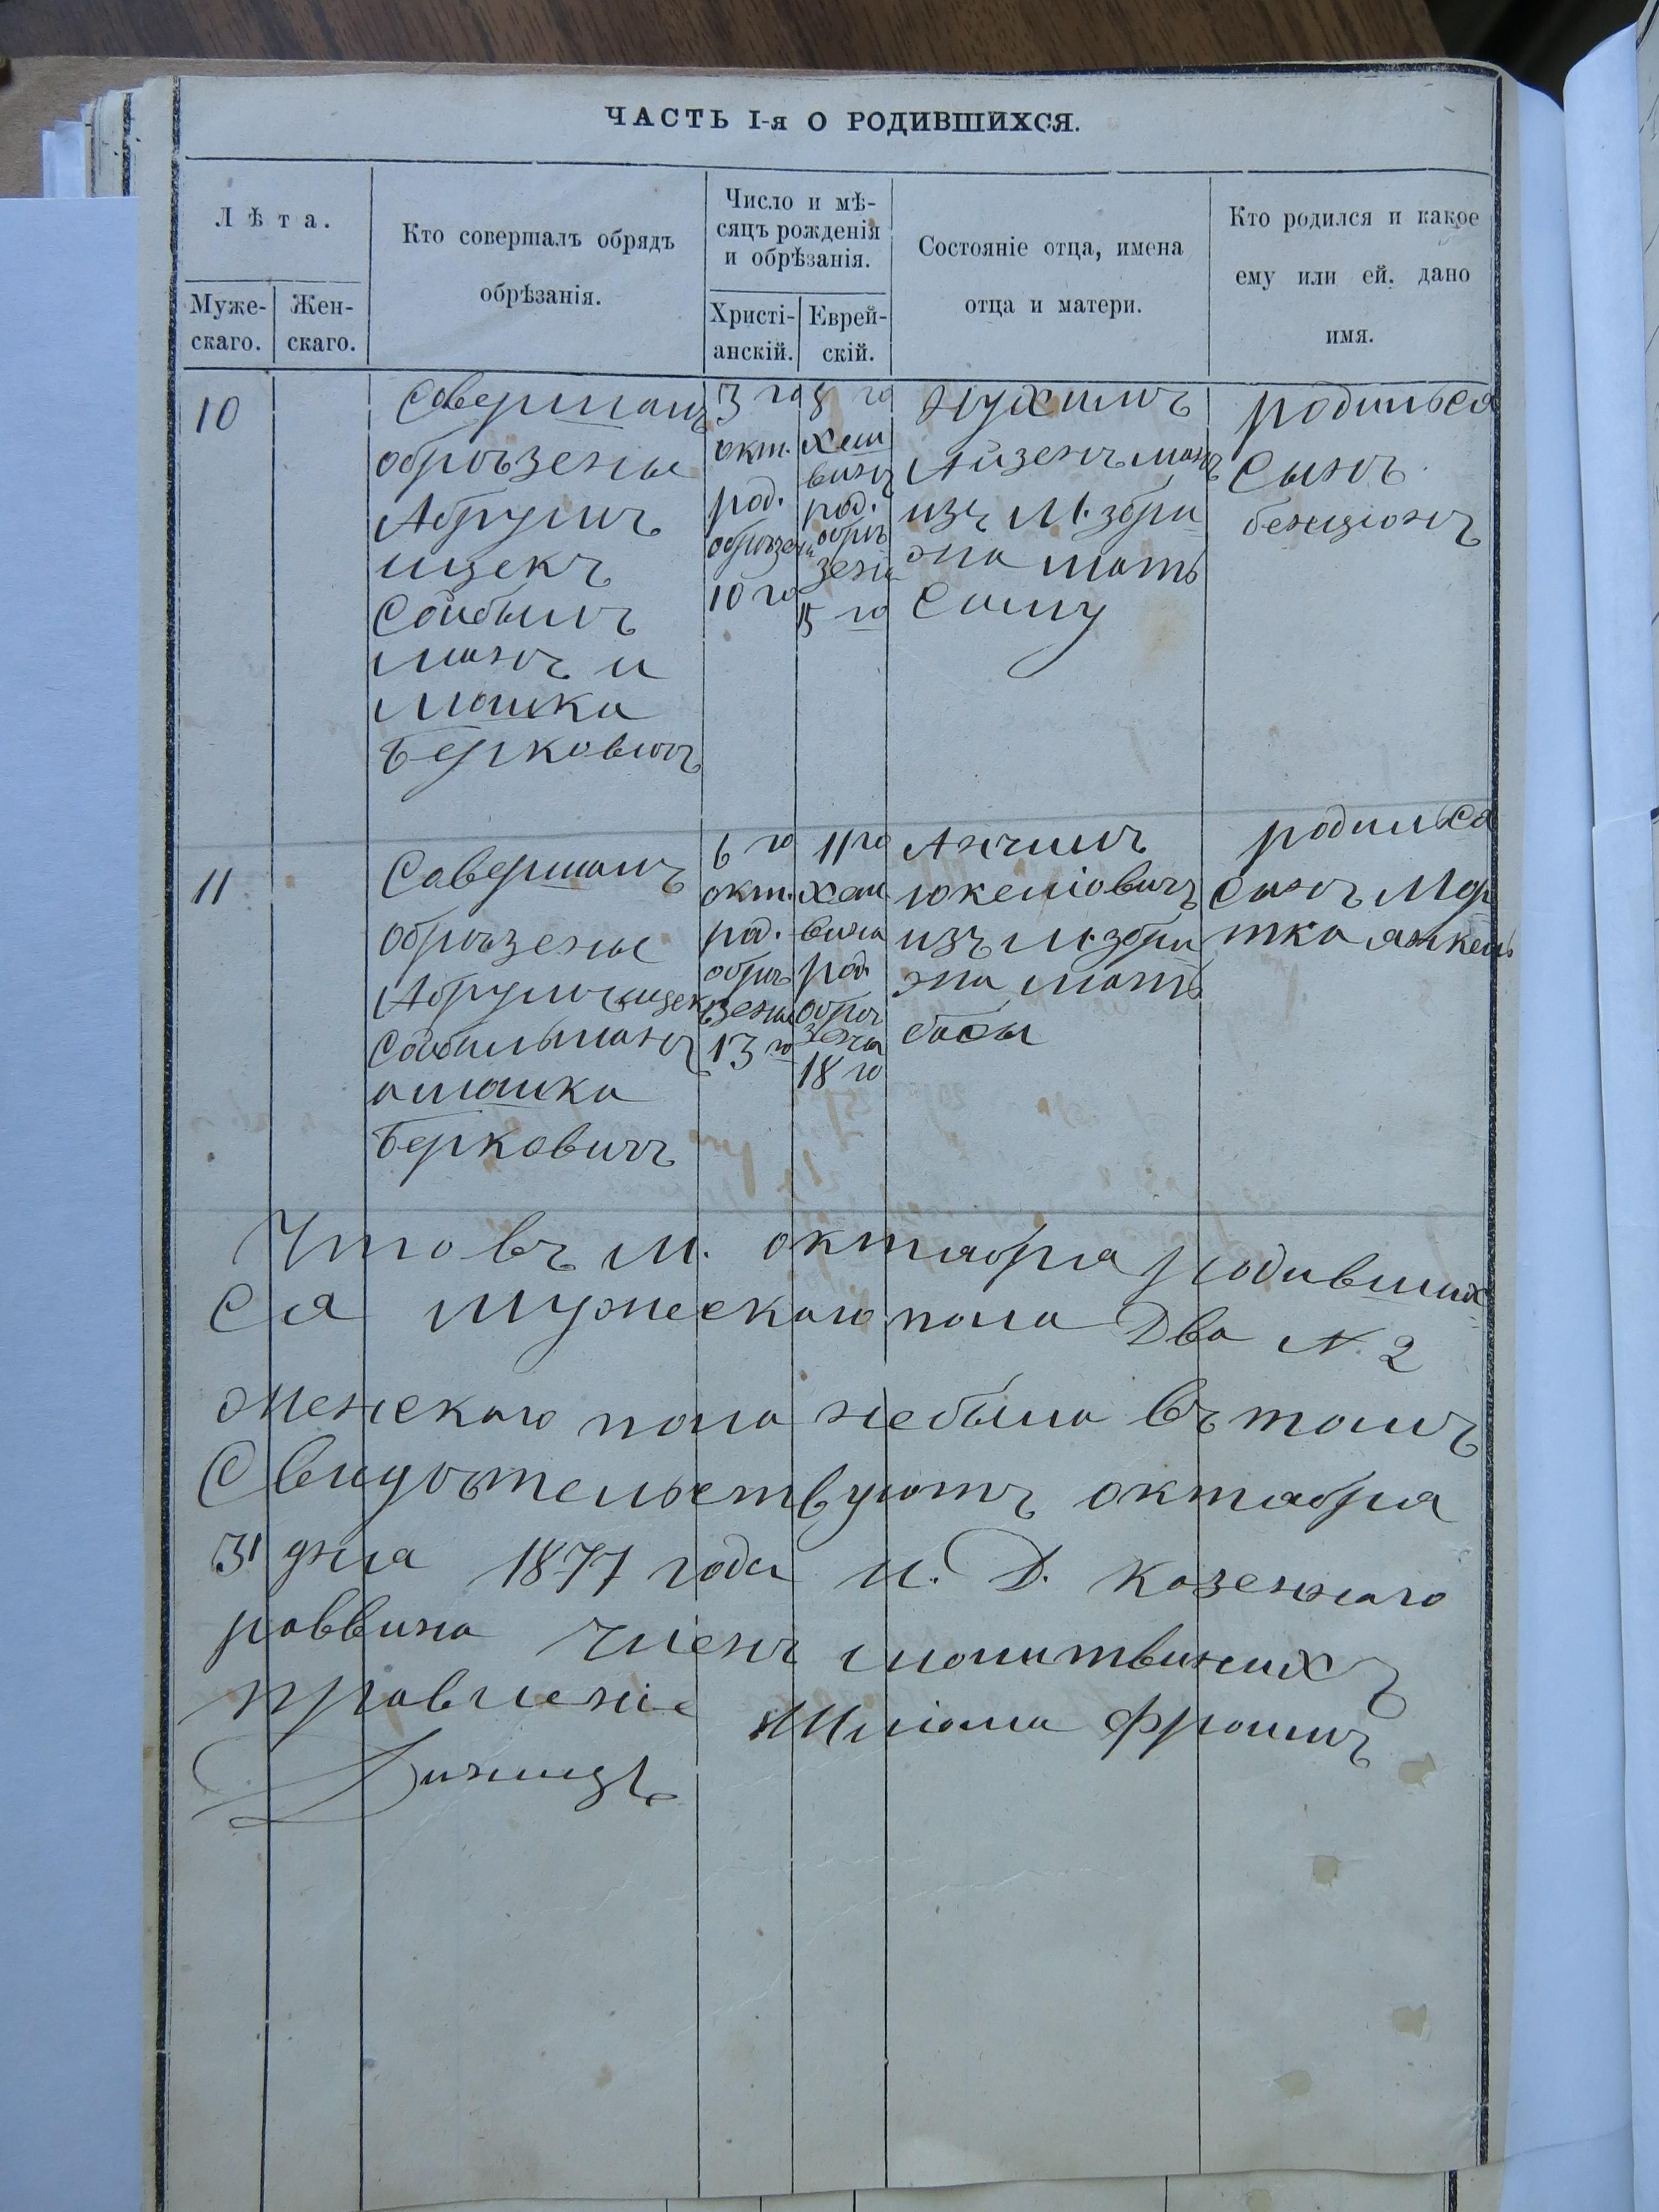 ЧАСТЬ I-я О РОДИВШИХСЯ.
Лѣта.
Муже-
скаго.
Жен-
скаго.
Кто совершалъ обрядъ
обрѣзанія.
Число и мѣ-
сяцъ рожденія
и обрѣзанія.
Христі-
анскій.
Еврей-
скій.
Состояніе отца, имена
отца и матери.
Кто родился и какое
ему или ей. дано
имя.
10
Совершалъ
обрѣзены
Абрумъ
ицекъ
Сойбылъ
манъ и
Мошка
Берковичъ
3 го
окт.
род.
обрѣзен
10 го
8 го
хеш
винъ
род.
обрѣ
зена
15 го
Нухимъ
Айзенъманъ
изъ м. збри
эна мать
Симу
родилься
Сынъ
бенціонъ
11
Совершалъ
обрѣзены
Абрумъ ицек
Сойбильманъ
а мошка
Берковичъ
6 го
окт.
род.
обрѣ
зены
13 го
11 го
хеш
вина
род.
обрѣ
зена
18 го
Анчилъ
юкеліовичъ
изъ м. збри
эна мать
басы
родилься
Сынъ Мор
тко янкель
Что въ м. октября родившихъ
ся мужескаго пола Два N. 2
Женскаго пола небыла въ томъ
Свидѣтельствуютъ октабря
31 дня 1877 года и. Д. казеннаго
раввина Членъ молитвиныхъ
правленіе Шліома Фроимъ